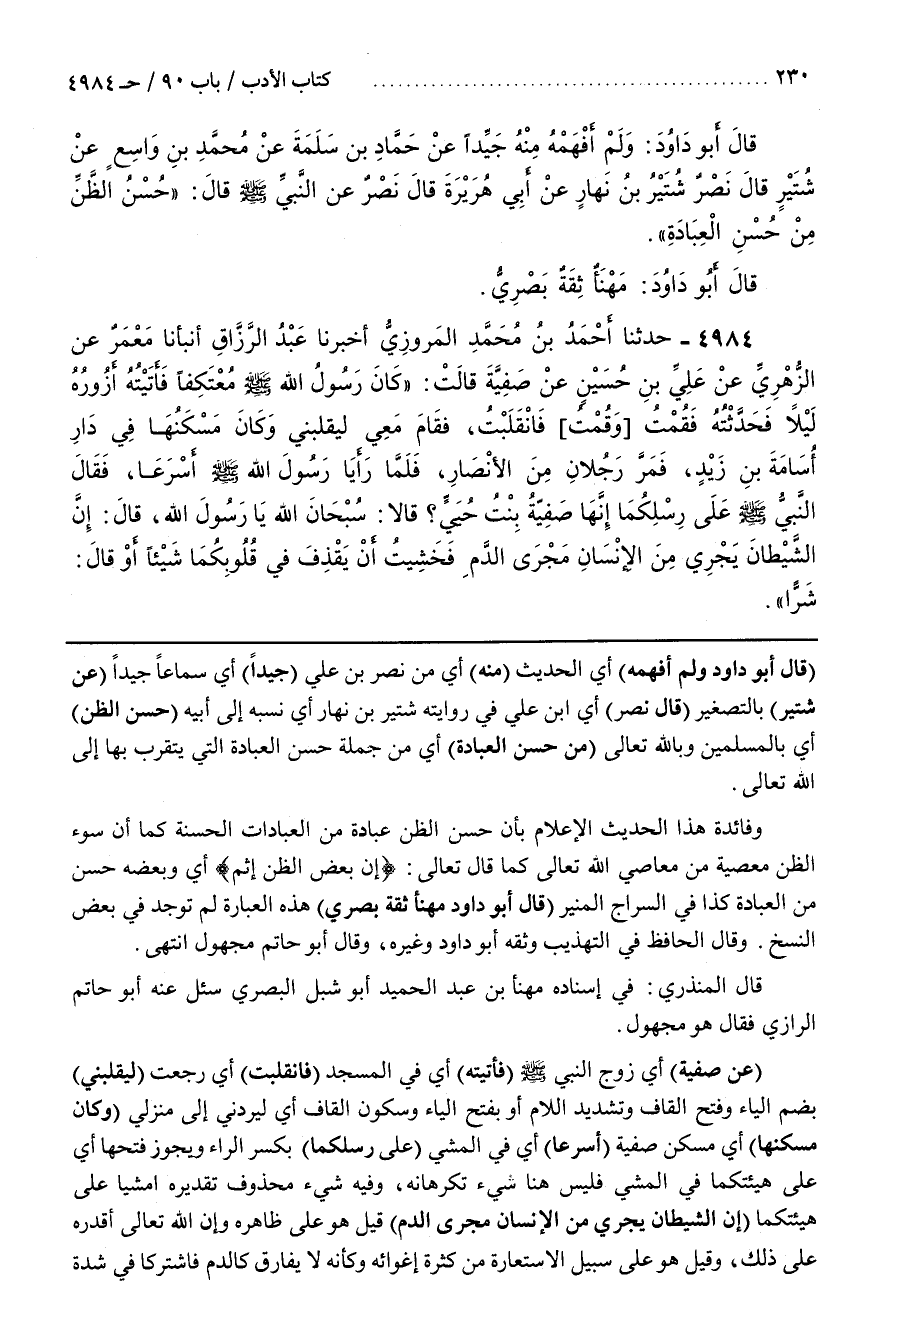 ٢٣٠ ................................................ كتاب الأدب / باب ٩٠ / حـ ٤٩٨٤
قالَ أَبو دَاوُدَ: وَلَمْ أَفْهَمْهُ مِنْهُ جَيِّداً عنْ حَمَّادِ بن سَلَمَةَ عنْ مُحمَّدِ بنِ وَاسِعٍ عنْ
شُتَيْرٍ قالَ نَصْرٌ شُتَيْرُ بنُ نَهارٍ عنْ أَبِي هُرَيْرَةَ قالَ نَصْرٌ عن النَّبيِّ ﷺ قالَ: «حُسْنُ الظَّنِّ
مِنْ حُسْنِ الْعِبَادَةِ».
قالَ أَبُو دَاوُدَ: مَهْنَأٌ ثِقَةٌ بَصْرِيٌّ.
٤٩٨٤ ـ حدثنا أَحْمَدُ بنُ مُحَمَّدٍ المَروزِيُّ أخبرنا عَبْدُ الرَّزَّاقِ أنبأنا مَعْمَرٌ عن
الزُّهْرِيِّ عنْ عَلِيِّ بنِ حُسَيْنٍ عنْ صَفِيَّةَ قالَتْ: «كَانَ رَسُولُ الله ﷺ مُعْتَكِفاً فَأَتَيْتُهُ أَزُورُهُ
لَيْلًا فَحَدَّثْتُهُ فَقُمْتُ [وَقُمْتُ] فَانْقَلَبْتُ، فقَامَ مَعِي ليقلبني وَكَانَ مَسْكَنُهَا فِي دَارِ
أُسَامَةَ بنِ زَيْدٍ، فَمَرَّ رَجُلانِ مِنَ الأنْصَارِ، فَلَمَّا رَأَيَا رَسُولَ الله ﷺ أَسْرَعَا، فَقَالَ
النَّبيُّ ﷺ عَلَى رِسْلِكُمَا إِنَّهَا صَفِيَّةُ بِنْتُ حُيَيٍّ؟ قالا: سُبْحَانَ الله يَا رَسُولَ الله، قالَ: إنَّ
الشَّيْطانَ يَجْرِي مِنَ الإنْسَانِ مَجْرَى الدَّمِ فَخَشِيتُ أَنْ يَقْذِفَ في قُلُوبِكُمَا شَيْئاً أَوْ قالَ:
شَرًّا».
(قال أبو داود ولم أفهمه) أي الحديث (منه) أي من نصر بن علي (جيداً) أي سماعاً جيداً (عن
شتير) بالتصغير (قال نصر) أي ابن علي في روايته شتير بن نهار أي نسبه إلى أبيه (حسن الظن)
أي بالمسلمين وبالله تعالى (من حسن العبادة) أي من جملة حسن العبادة التي يتقرب بها إلى
الله تعالى.
وفائدة هذا الحديث الإعلام بأن حسن الظن عبادة من العبادات الحسنة كما أن سوء
الظن معصية من معاصي الله تعالى كما قال تعالى: ﴿إن بعض الظن إثم﴾ أي وبعضه حسن
من العبادة كذا في السراج المنير (قال أبو داود مهنأ ثقة بصري) هذه العبارة لم توجد في بعض
النسخ. وقال الحافظ في التهذيب وثقه أبو داود وغيره، وقال أبو حاتم مجهول انتهى.
قال المنذري: في إسناده مهنأ بن عبد الحميد أبو شبل البصري سئل عنه أبو حاتم
الرازي فقال هو مجهول.
(عن صفية) أي زوج النبي ﷺ (فأتيته) أي في المسجد (فانقلبت) أي رجعت (ليقلبني)
بضم الياء وفتح القاف وتشديد اللام أو بفتح الياء وسكون القاف أي ليردني إلى منزلي (وكان
مسكنها) أي مسكن صفية (أسرعا) أي في المشي (على رسلكما) بكسر الراء ويجوز فتحها أي
على هيئتكما في المشي فليس هنا شيء تكرهانه، وفيه شيء محذوف تقديره امشيا على
هيئتكما (إن الشيطان يجري من الإنسان مجرى الدم) قيل هو على ظاهره وإن الله تعالى أقدره
على ذلك، وقيل هو على سبيل الاستعارة من كثرة إغوائه وكأنه لا يفارق كالدم فاشتركا في شدة